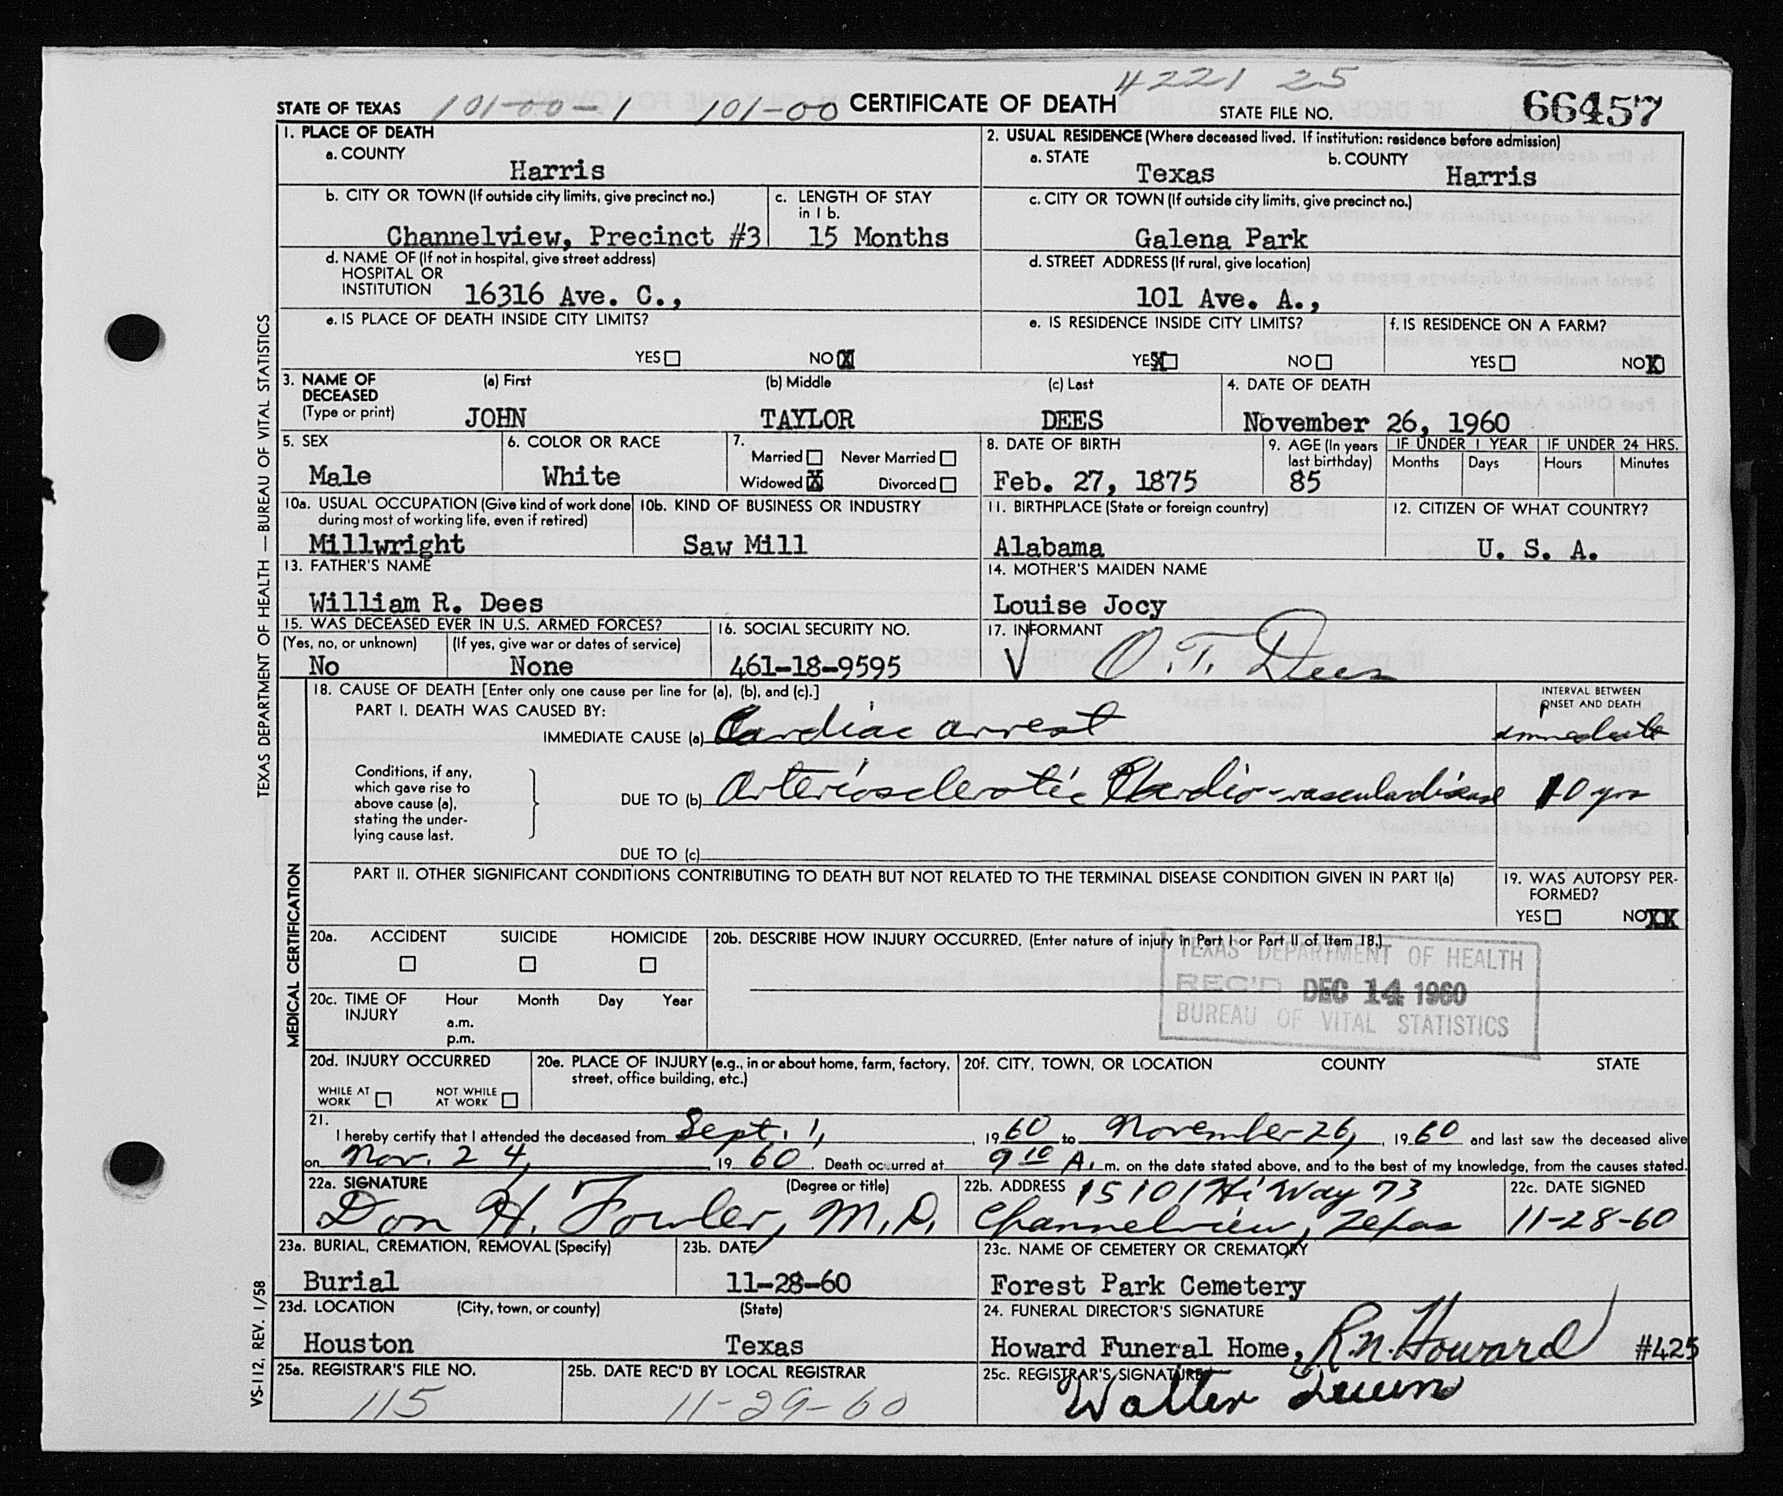 4221 25
STATE OF TEXAS 101-00-1 101-00 CERTIFICATE OF DEATH STATE FILE NO. 66457
1. PLACE OF DEATH
a. COUNTY
Harris
2. USUAL RESIDENCE (Where deceased lived. If institution: residence before admission)
a. STATE b. COUNTY
Texas Harris
b. CITY OR TOWN (If outside city limits, give precinct no.)
Channelview, Precinct #3
c. LENGTH OF STAY
in 1 b.
15 Months
c. CITY OR TOWN (If outside city limits, give precinct no.)
Galena Park
d. NAME OF (If not in hospital, give street address)
HOSPITAL OR
INSTITUTION 16316 Ave. C.,
d. STREET ADDRESS (If rural, give location)
101 Ave. A.,
e. IS PLACE OF DEATH INSIDE CITY LIMITS?
YES NO X
e. IS RESIDENCE INSIDE CITY LIMITS?
YES X NO
f. IS RESIDENCE ON A FARM?
YES NO X
3. NAME OF
DECEASED
(Type or print)
(a) First (b) Middle (c) Last
JOHN TAYLOR DEES
4. DATE OF DEATH
November 26, 1960
5. SEX
Male
6. COLOR OR RACE
White
7.
Married Never Married
Widowed X Divorced
8. DATE OF BIRTH
Feb. 27, 1875
9. AGE (In years
last birthday)
85
IF UNDER 1 YEAR IF UNDER 24 HRS.
Months Days Hours Minutes
10a. USUAL OCCUPATION (Give kind of work done
during most of working life, even if retired)
Millwright
10b. KIND OF BUSINESS OR INDUSTRY
Saw Mill
11. BIRTHPLACE (State or foreign country)
Alabama
12. CITIZEN OF WHAT COUNTRY?
U. S. A.
13. FATHER'S NAME
William R. Dees
14. MOTHER'S MAIDEN NAME
Louise Jocy
15. WAS DECEASED EVER IN U.S. ARMED FORCES?
(Yes, no, or unknown) (If yes, give war or dates of service)
No None
16. SOCIAL SECURITY NO.
461-18-9595
17. INFORMANT
O. T. Dees
18. CAUSE OF DEATH [Enter only one cause per line for (a), (b), and (c).]
PART I. DEATH WAS CAUSED BY:
IMMEDIATE CAUSE (a) Cardiac arrest
INTERVAL BETWEEN
ONSET AND DEATH
immediate
Conditions, if any,
which gave rise to
above cause (a),
stating the under-
lying cause last.
DUE TO (b) Arteriosclerotic Cardio-vascular disease 10 yrs
DUE TO (c)
PART II. OTHER SIGNIFICANT CONDITIONS CONTRIBUTING TO DEATH BUT NOT RELATED TO THE TERMINAL DISEASE CONDITION GIVEN IN PART I(a)
19. WAS AUTOPSY PER-
FORMED?
YES NO XX
20a. ACCIDENT SUICIDE HOMICIDE
20b. DESCRIBE HOW INJURY OCCURRED. (Enter nature of injury in Part I or Part II of Item 18.)
TEXAS DEPARTMENT OF HEALTH
REC'D DEC 14 1960
BUREAU OF VITAL STATISTICS
20c. TIME OF
INJURY
Hour Month Day Year
a.m.
p.m.
20d. INJURY OCCURRED
WHILE AT
WORK
NOT WHILE
AT WORK
20e. PLACE OF INJURY (e.g., in or about home, farm, factory,
street, office building, etc.)
20f. CITY, TOWN, OR LOCATION COUNTY STATE
21.
I hereby certify that I attended the deceased from Sept. 1, , 1960 to November 26, , 1960 and last saw the deceased alive
on Nov. 24, , 1960 . Death occurred at 9 10 A. m. on the date stated above, and to the best of my knowledge, from the causes stated.
22a. SIGNATURE (Degree or title)
Don H. Fowler, M.D.
22b. ADDRESS 15101 Hi Way 73
Channelview, Texas
22c. DATE SIGNED
11-28-60
23a. BURIAL, CREMATION, REMOVAL (Specify)
Burial
23b. DATE
11-28-60
23c. NAME OF CEMETERY OR CREMATORY
Forest Park Cemetery
23d. LOCATION (City, town, or county) (State)
Houston Texas
24. FUNERAL DIRECTOR'S SIGNATURE
Howard Funeral Home, R. N. Howard #425
25a. REGISTRAR'S FILE NO.
115
25b. DATE REC'D BY LOCAL REGISTRAR
11-29-60
25c. REGISTRAR'S SIGNATURE
Walter
TEXAS DEPARTMENT OF HEALTH — BUREAU OF VITAL STATISTICS
MEDICAL CERTIFICATION
VS-112, REV. 1/58